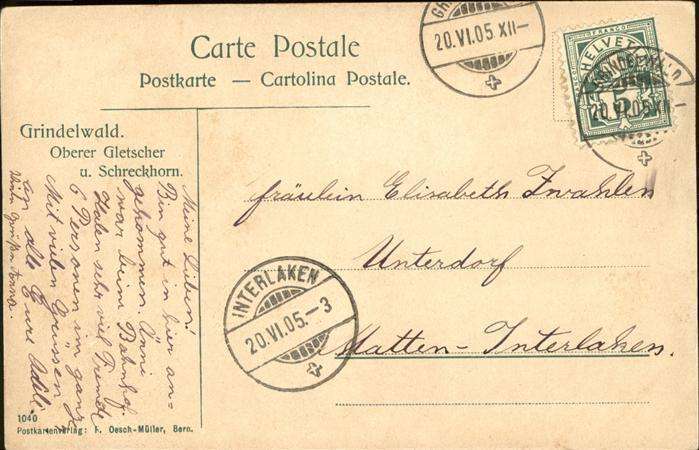 Carte Postale
Postkarte — Cartolina Postale.
Grindelwald.
Oberer Gletscher
u. Schreckhorn.
20.VI.05 XII—
FRANCO
HELVETIA
5
GRINDELWALD
20.VI.05 XII—
Fräulein Elisabeth Zwahlen
Unterdorf
Matten-Interlaken.
INTERLAKEN
20.VI.05.—3
Meine Lieben!
Bin gut in hier an-
gekommen. Änni
war beim Bahnhof
Haben sehr viel Freude
6 Personen im ganz
Mit vielen Grüssen
an alle Eure Adele
1040
Postkartenverlag: F. Oesch-Müller, Bern.